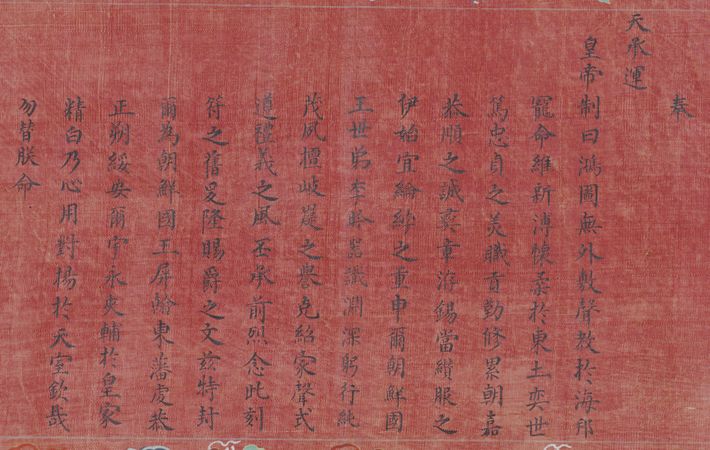 奉
天承運
皇帝制曰鴻圖無外敷聲教於海邦
寵命維新溥懷柔於東土奕世
篤忠貞之美職貢勤修累朝嘉
恭順之誠褒章洊錫當纘服之
伊始宜綸綍之重申爾朝鮮國
王世弟李昑器識淵深躬行純
茂夙擅岐嶷之譽克紹家聲式
遵禮義之風丕承前烈念此剖
符之舊爰隆賜爵之文茲特封
爾為朝鮮國王屏翰東藩虔恭
正朔綏安爾宇永夾輔於皇家
精白乃心用對揚於天室欽哉
勿替朕命